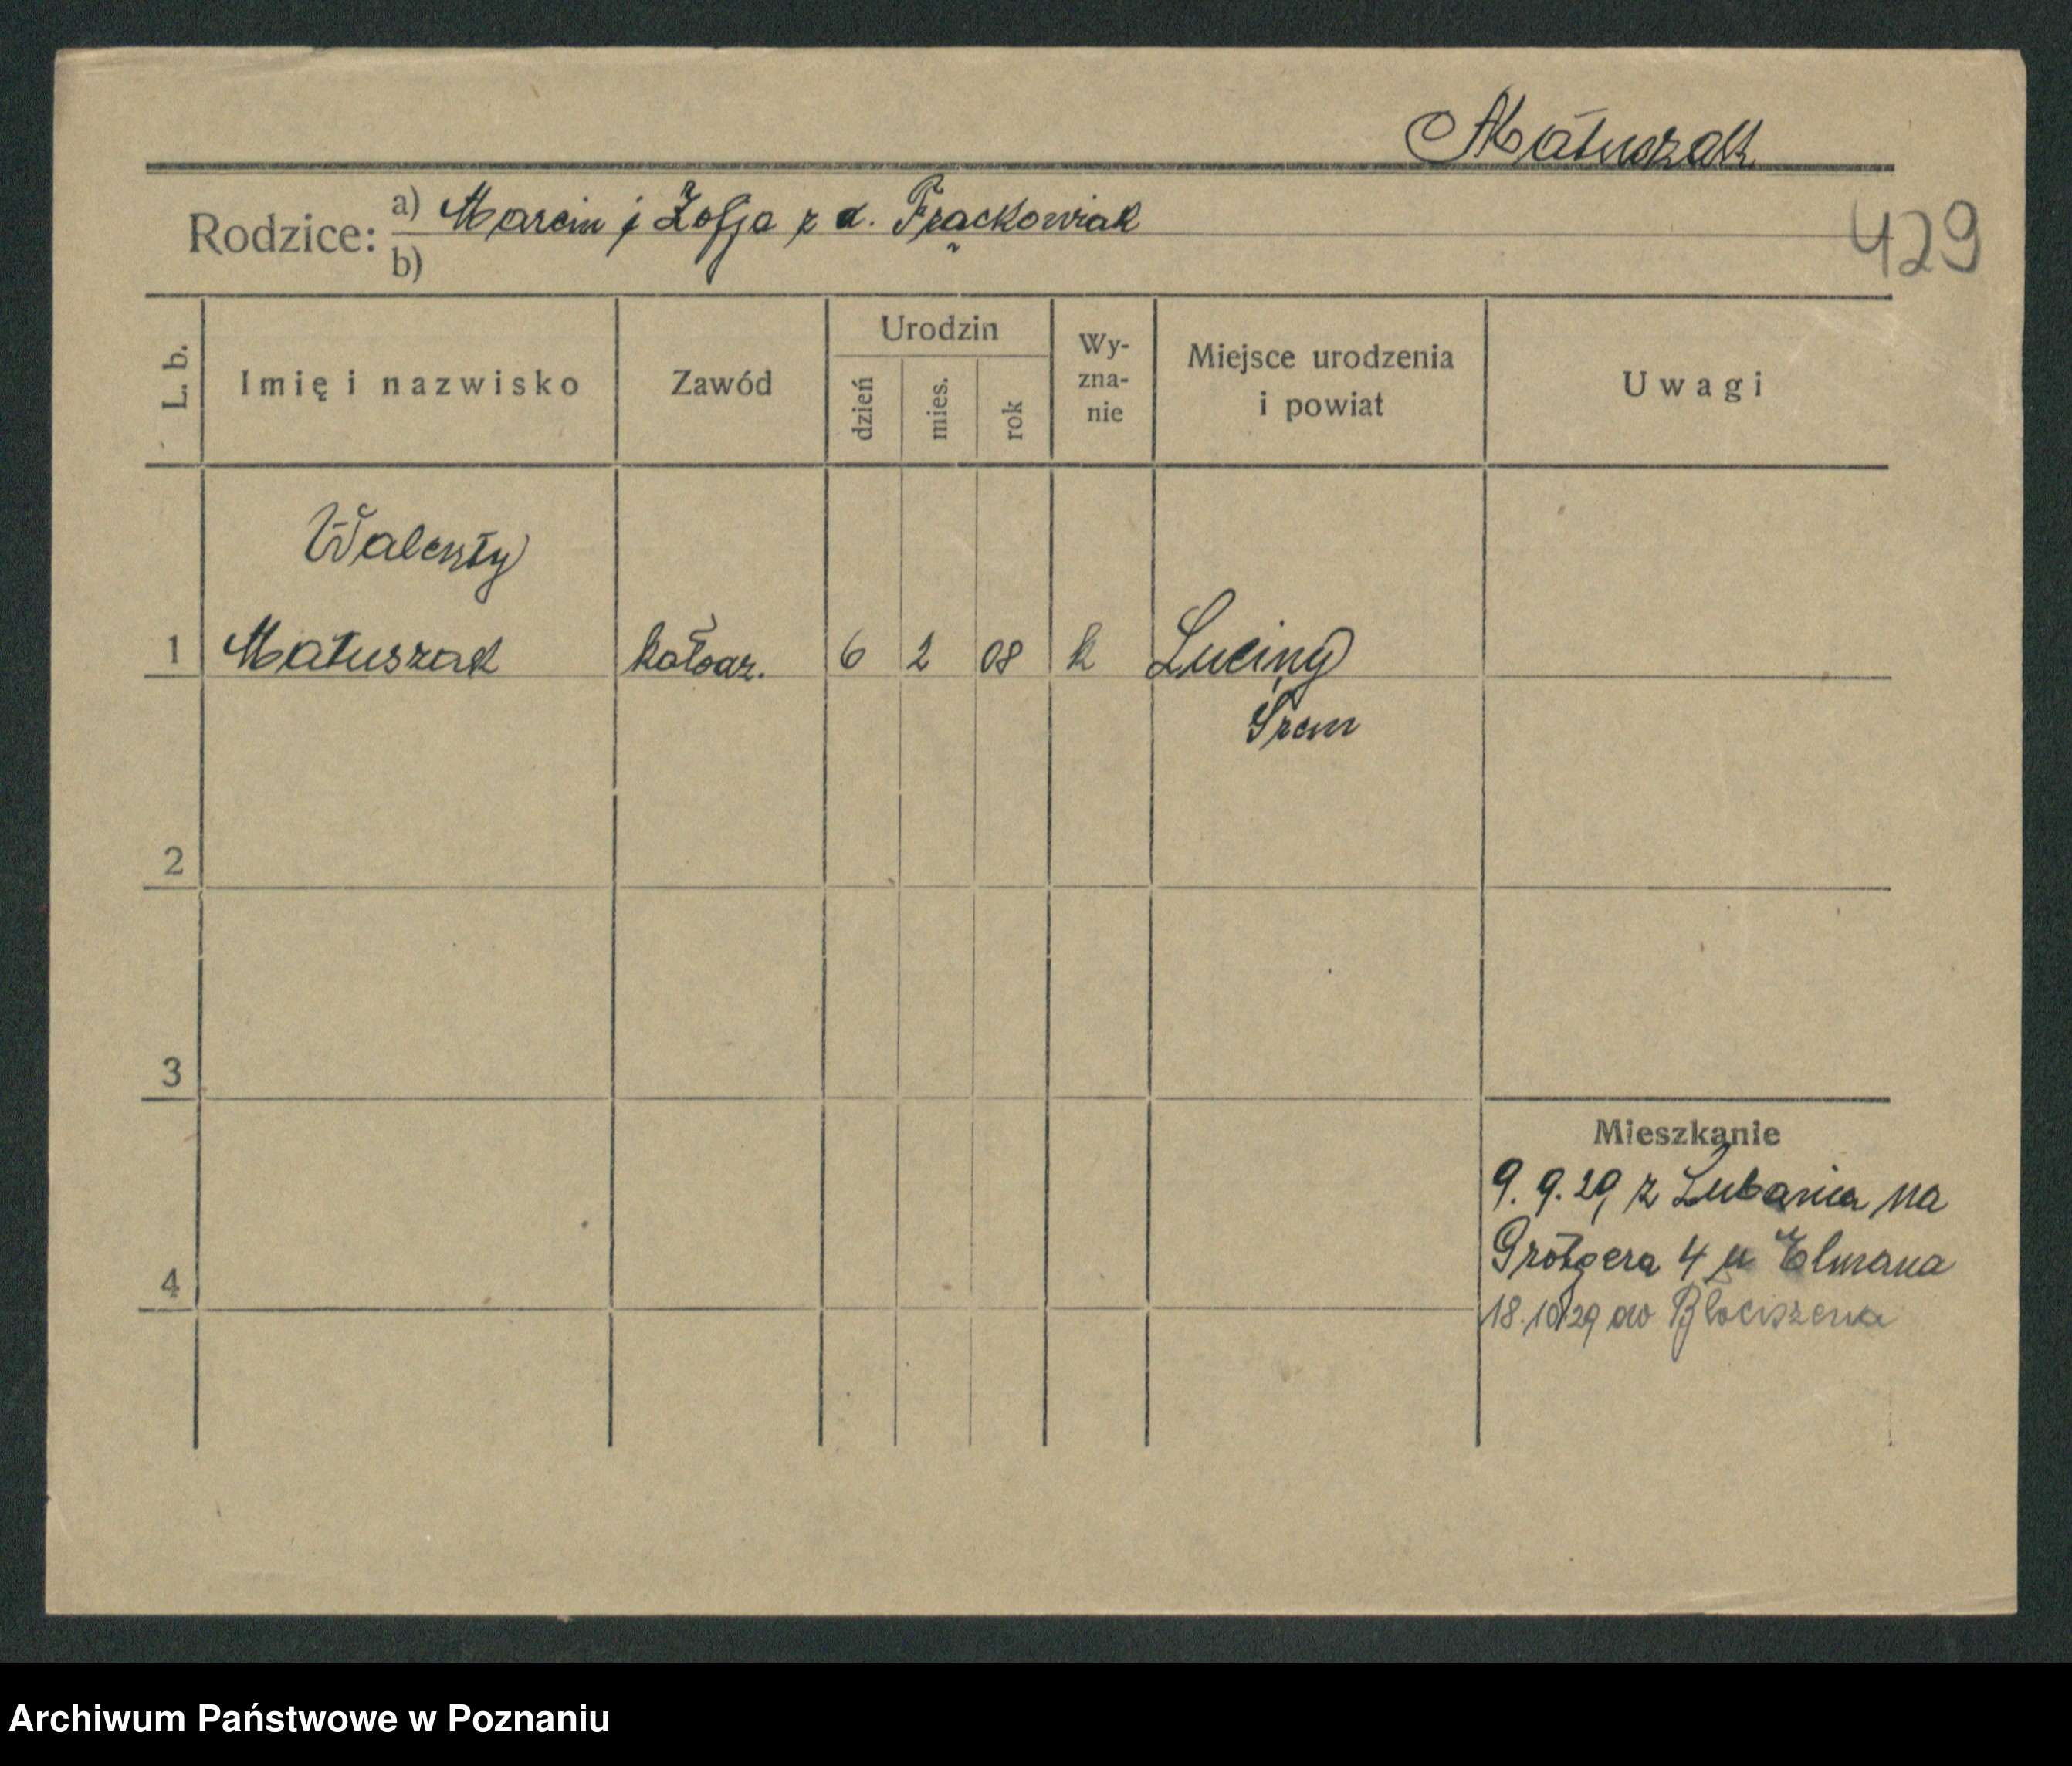 Matuszak
429
Rodzice: a) Marcin i Zofja z d. Frąckowiak
b)
L. b. Imię i nazwisko Zawód Urodzin dzień mies. rok Wy-zna-nie Miejsce urodzenia i powiat Uwagi
Walenty
1 Matuszak kołodz. 6 2 08 k Luciny
Śrem
2
3
Mieszkanie
9. 9. 29 z Lubania na
Grötgera 4 u Elmana
4
18.10 29 do Błociszewa
Archiwum Państwowe w Poznaniu